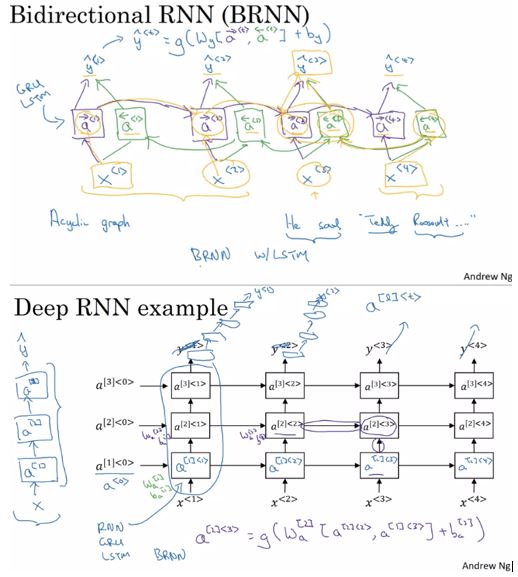 Bidirectional RNN (BRNN)
ŷ<t> = g(Wy[a→<t>, a←<t>] + by)
ŷ<1> ŷ<2> ŷ<3> ŷ<4>
GRU
LSTM
a→<1> a←<1> a→<2> a←<2> a→<3> a←<3> a→<4> a←<4>
x<1> x<2> x<3> x<4>
Acyclic graph
He said, "Teddy Roosevelt ..."
BRNN w/LSTM
Andrew Ng
Deep RNN example
y<1> y<2> a[l]<t>
ŷ y<1> y<2> y<3> y<4>
a[3]<0> a[3]<1> a[3]<2> a[3]<3> a[3]<4>
a[2]<0> a[2]<1> a[2]<2> a[2]<3> a[2]<4>
a[1]<0> a[1]<1> a[1]<2> a[1]<3> a[1]<4>
x x<1> x<2> x<3> x<4>
RNN
GRU
LSTM BRNN
a[2]<3> = g(Wa[2] [a[2]<2>, a[1]<3>] + ba[2])
Andrew Ng